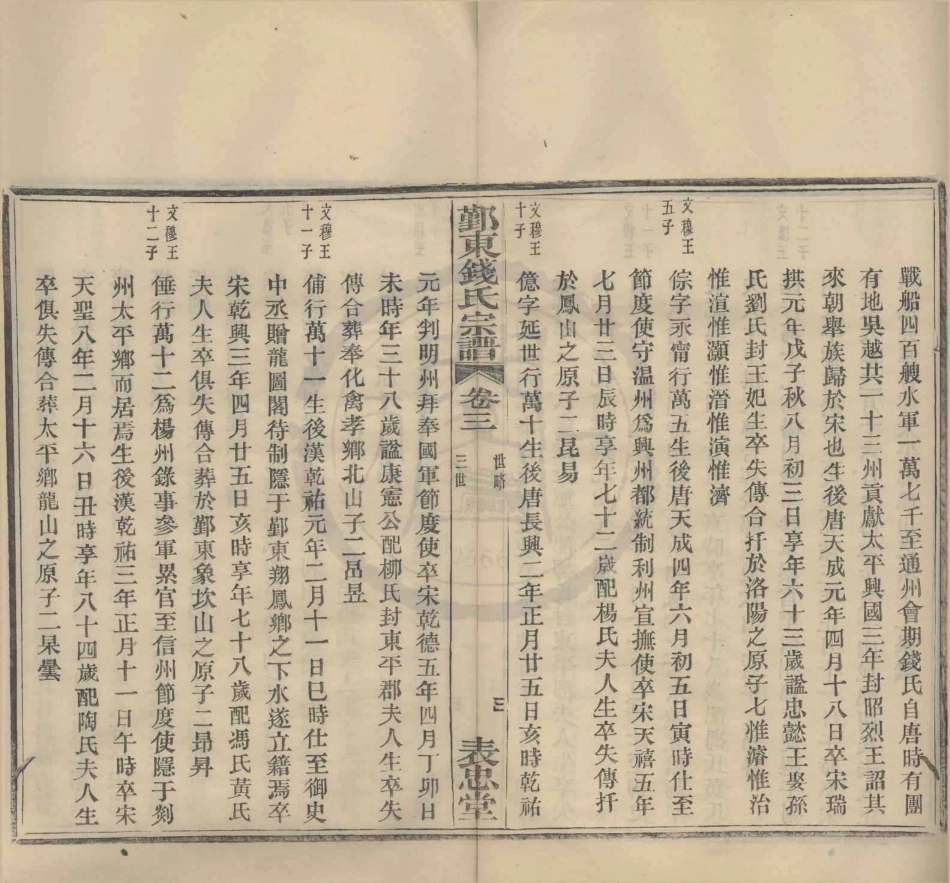 戰船四百艘水軍一萬七千至通州會期錢氏自唐時有團
有地吳越共一十三州貢獻太平興國三年封昭烈王詔其
來朝舉族歸於宋也生後唐天成元年四月十八日卒宋瑞
拱元年戊子秋八月初三日享年六十三歲諡忠懿王娶孫
氏劉氏封王妃生卒失傳合扦於洛陽之原子七惟濬惟治
惟渲惟灝惟溍惟演惟濟
文穆王
五子
倧字永甯行萬五生後唐天成四年六月初五日寅時仕至
節度使守温州爲興州都統制利州宣撫使卒宋天禧五年
七月廿三日辰時享年七十二歲配楊氏夫人生卒失傳扦
於鳳山之原子二昆易
文穆王
十子
億字延世行萬十生後唐長興二年正月廿五日亥時乾祐
鄞東錢氏宗譜
卷三
世略
三世
三
表忠堂
元年判明州拜奉國軍節度使卒宋乾德五年四月丁卯日
未時年三十八歲諡康憲公配柳氏封東平郡夫人生卒失
傳合葬奉化禽孝鄉北山子二昂昱
文穆王
十一子
偤行萬十一生後漢乾祐元年二月十一日巳時仕至御史
中丞贈龍圖閣待制隱于鄞東翔鳳鄉之下水遂立籍焉卒
宋乾興三年四月廿五日亥時享年七十八歲配馮氏黃氏
夫人生卒俱失傳合葬於鄞東象坎山之原子二昂昇
文穆王
十二子
倕行萬十二爲楊州錄事參軍累官至信州節度使隱于剡
州太平鄉而居焉生後漢乾祐三年正月十一日午時卒宋
天聖八年二月十六日丑時享年八十四歲配陶氏夫人生
卒俱失傳合葬太平鄉龍山之原子二杲曇